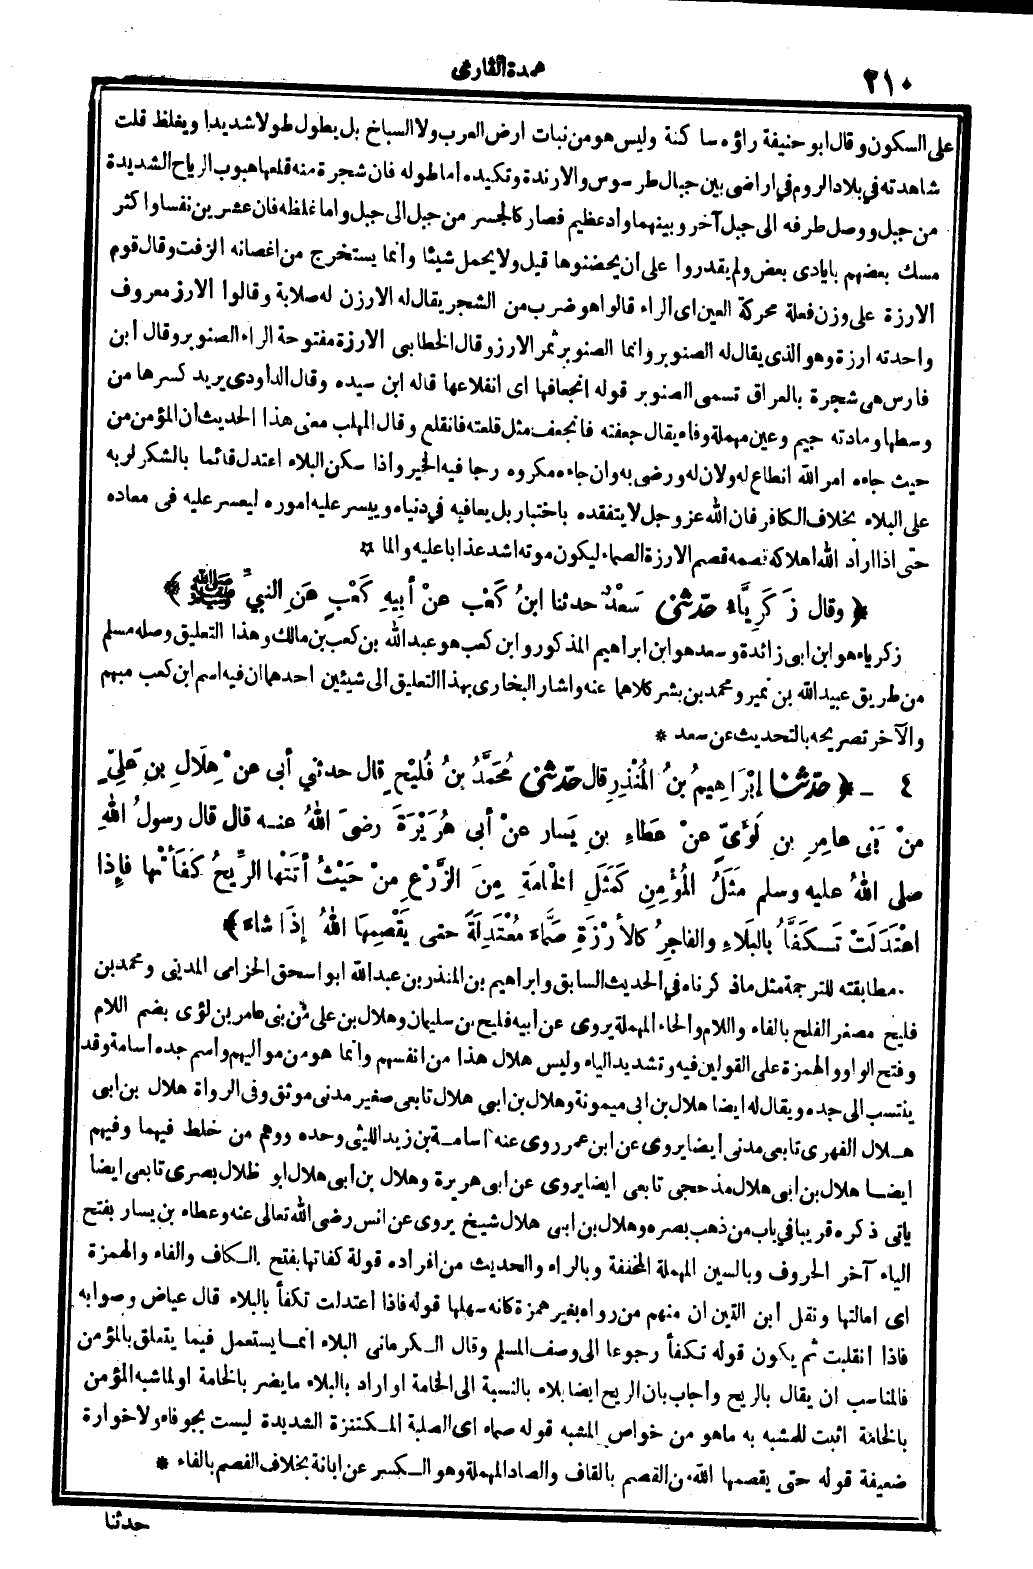 ٢١٠
عمدة القارى
على السكون وقال ابو حنيفة راؤه ساكنة وليس هو من نبات ارض العرب ولا السباخ بل يطول طولا شديدا ويغلظ قلت
شاهدته في بلاد الروم في اراضى بين جبال طرسوس والارندة وتكيده اما طوله فان شجرة منه قلعها هبوب الرياح الشديدة
من جبل ووصل طرفه الى جبل آخر وبينهما واد عظيم فصار كالجسر من جبل الى جبل واما غلظه فان عشرين نفسا واكثر
مسك بعضهم بايادى بعض ولم يقدروا على ان يحضنوها قيل ولا يحمل شيئا وانما يستخرج من اغصانه الزفت وقال قوم
الارزة على وزن فعلة محركة العين اى الراء قالوا هو ضرب من الشجر يقال له الارزن له صلابة وقالوا الارز معروف
واحدته ارزة وهو الذى يقال له الصنوبر وانما الصنوبر ثمر الارز وقال الخطابى الارزة مفتوحة الراء الصنوبر وقال ابن
فارس هى شجرة بالعراق تسمى الصنوبر قوله انجعافها اى انقلاعها قاله ابن سيده وقال الداودى يريد كسرها من
وسطها ومادته جيم وعين مهملة وفاء يقال جعفته فانجعف مثل قلعته فانقلع وقال المهلب معنى هذا الحديث ان المؤمن من
حيث جاءه امر الله انطاع له ولان له ورضى به وان جاءه مكروه رجا فيه الخير واذا سكن البلاء اعتدل قائما بالشكر لربه
على البلاء بخلاف الكافر فان الله عز وجل لا يتفقده باختبار بل يعافيه في دنياه وييسر عليه اموره ليعسر عليه فى معاده
حتى اذا اراد الله اهلاكه قصمه قصم الارزة الصماء ليكون موته اشد عذابا عليه والما ☆
﴿ وقال زَكَرِيَّاءُ حدّثنى سَعْدٌ حدثنا ابنُ كَعْبٍ عنْ أبيهِ كَعْبٍ عَنِ النبيِّ ﷺ ﴾
زكرياء هو ابن ابى زائدة وسعد هو ابن ابراهيم المذكور وابن كعب هو عبد الله بن كعب بن مالك وهذا التعليق وصله مسلم
من طريق عبيد الله بن نمير ومحمد بن بشر كلاهما عنه واشار البخارى بهذا التعليق الى شيئين احدهما ان فيه اسم ابن كعب مبهم
والآخر تصريحه بالتحديث عن سعد *
٤ ـ ﴿ حدّثنا إبْرَاهِيمُ بنُ المُنْذِرِ قال حدّثنى مُحَمَّدُ بنُ فُلَيْحٍ قال حدثني أبى عنْ هِلَالِ بنِ عَلِيٍّ
مِنْ بَنِى عامِرِ بنِ لُؤَىٍّ عنْ عَطاءِ بنِ يَسار عنْ أبى هُرَيْرَةَ رضىَ اللهُ عنه قال قال رسولُ اللهِ
صلى اللهُ عليه وسلم مَثَلُ المُؤْمِنِ كَمَثَلِ الخامَةِ مِنَ الزَّرْعِ مِنْ حَيْثُ أتَتْها الرِّيحُ كَفَأتْها فإِذا
اعْتَدَلَتْ تَكَفَّأُ بالبَلَاءِ والفاجِرُ كالأرْزَةِ صَمَّاءَ مُعْتَدِلَةً حتى يَقْصِمَهَا اللهُ إذَا شاءَ ﴾
مطابقته للترجمة مثل ما ذكرناه في الحديث السابق وابراهيم بن المنذر بن عبد الله ابو اسحق الحزامى المدينى ومحمد بن
فليح مصغر الفلح بالفاء واللام والحاء المهملة يروى عن ابيه فليح بن سليمان وهلال بن على من بنى عامر بن لؤى بضم اللام
وفتح الواو والهمزة على القولين فيه وتشديد الياء وليس هلال هذا من انفسهم وانما هو من مواليهم واسم جده اسامة وقد
ينتسب الى جده ويقال له ايضا هلال بن ابى ميمونة وهلال بن ابى هلال تابعى صغير مدنى موثق وفى الرواة هلال بن ابى
هلال الفهرى تابعى مدنى ايضا يروى عن ابن عمر روى عنه اسامة بن زيد الليثى وحده ووهم من خلط فيهما وفيهم
ايضا هلال بن ابى هلال مذحجى تابعى ايضا يروى عن ابى هريرة وهلال بن ابى هلال ابو ظلال بصرى تابعى ايضا
ياتى ذكره قريبا في باب من ذهب بصره وهلال بن ابى هلال شيخ يروى عن انس رضى الله تعالى عنه وعطاء بن يسار بفتح
الياء آخر الحروف وبالسين المهملة المخففة وبالراء والحديث من افراده قوله كفاتها بفتح الكاف والفاء والهمزة
اى امالتها ونقل ابن التين ان منهم من رواه بغير همزة كانه سهلها قوله فاذا اعتدلت تكفأ بالبلاء قال عياض وصوابه
فاذا انقلبت ثم يكون قوله تكفأ رجوعا الى وصف المسلم وقال الكرمانى البلاء انما يستعمل فيما يتعلق بالمؤمن
فالمناسب ان يقال بالريح واجاب بان الريح ايضا بلاء بالنسبة الى الخامة او اراد بالبلاء ما يضر بالخامة او لما شبه المؤمن
بالخامة اثبت للمشبه به ماهو من خواص المشبه قوله صماء اى الصلبة المكتنزة الشديدة ليست بجوفاء ولا خوارة
ضعيفة قوله حتى يقصمها الله من القصم بالقاف والصاد المهملة وهو الكسر عن ابانة بخلاف الفصم بالفاء *
حدثنا